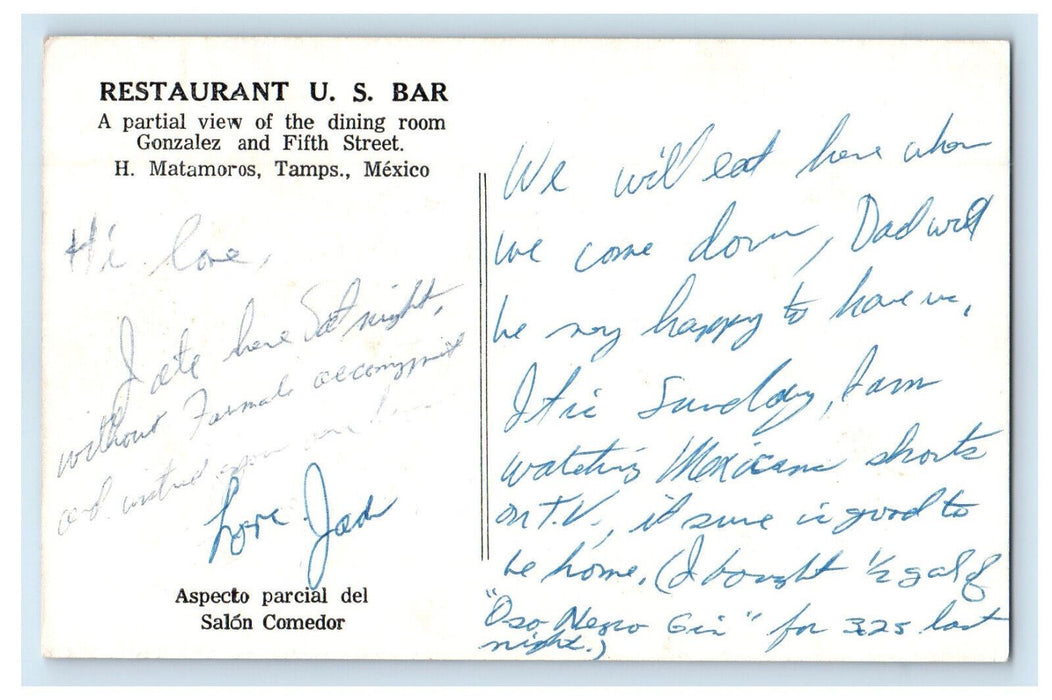 RESTAURANT U. S. BAR
A partial view of the dining room
Gonzalez and Fifth Street.
H. Matamoros, Tamps., México
Hi love,
I ate here Sat night,
without Female
and wished you
Love Jack
Aspecto parcial del
Salón Comedor
We will eat here when
we come down, Dad will
be very happy to have us,
It is Sunday, I am
watching Mexicans shorts
on T.V., it sure is good to
be home. (I bought 1/2 gal of
"Oso Negro Gin" for 3.25 last
night.)